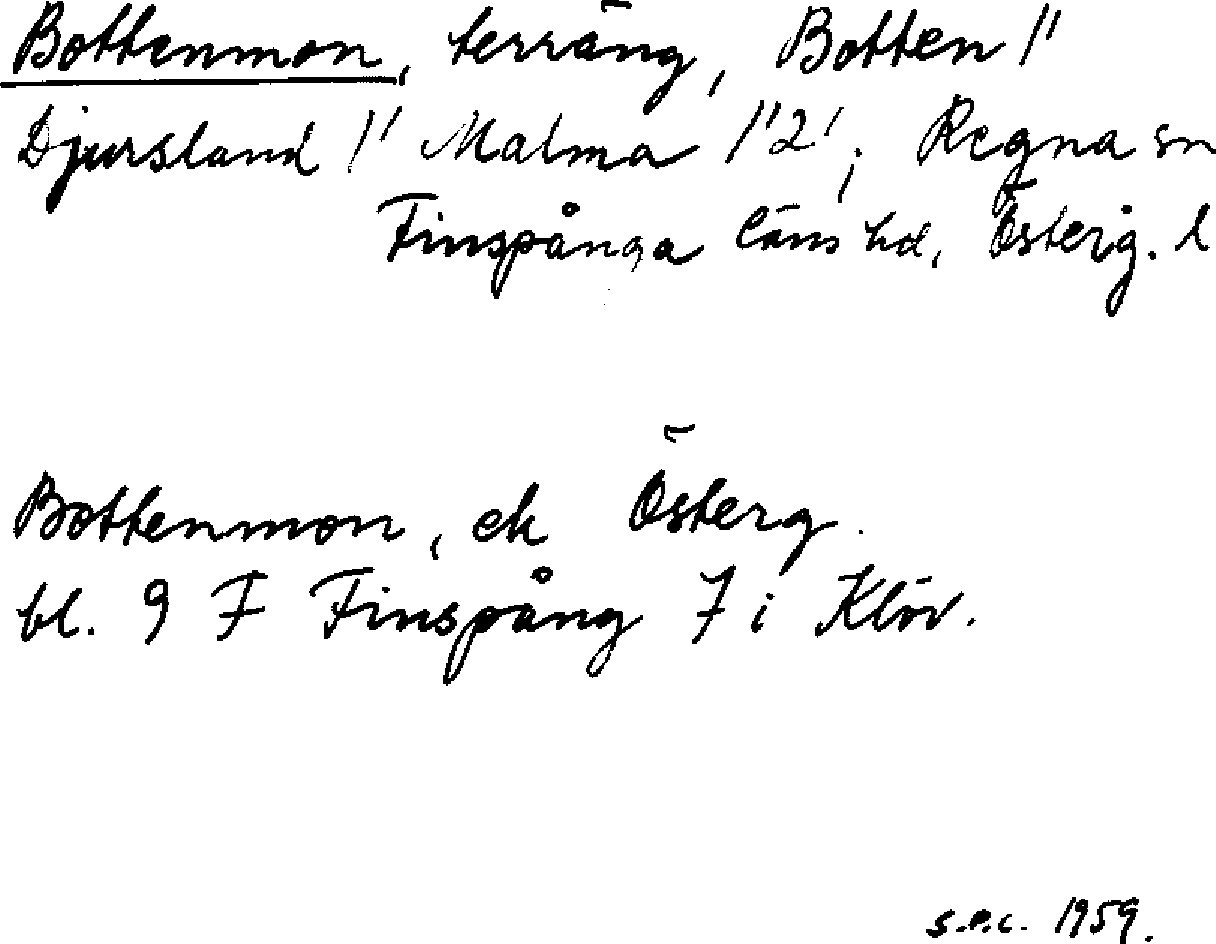 Bottenmon, terräng, Botten 1"
Djursland 1" Malma 1"2', Regna sn
Finspånga läns hd, Österg. l
Bottenmon, ek Österg.
bl. 9 F Finspång 7 i Klöv.
s.e.c. 1959.